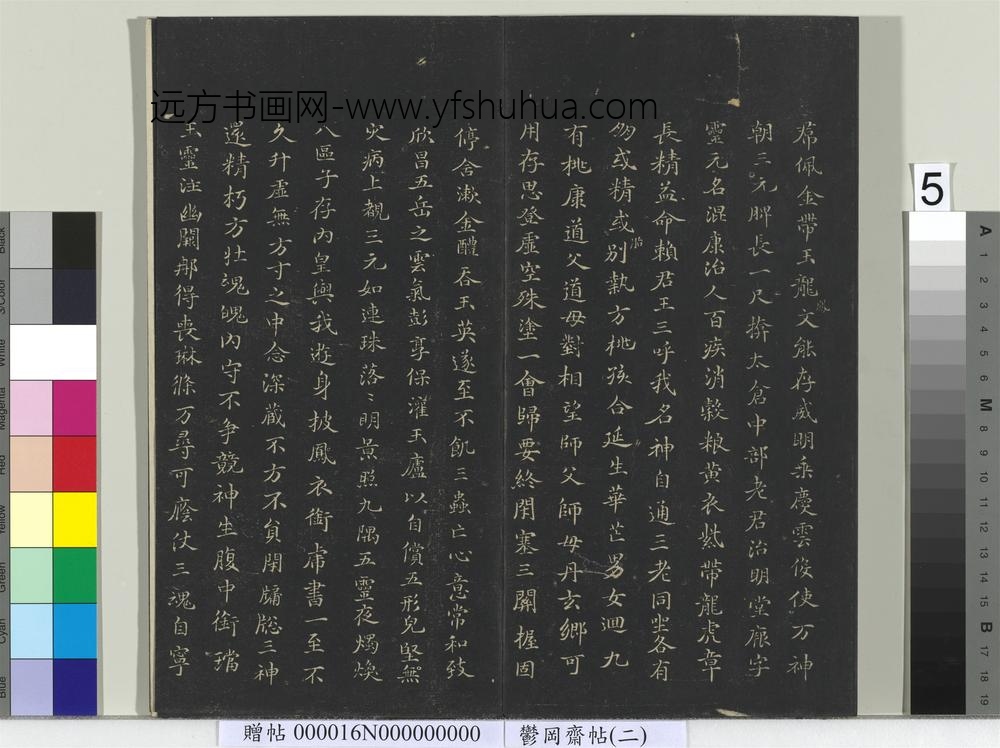 远方书画网-www.yfshuhua.com
帬佩金帶玉龍虎文能存威明乘慶雲役使万神
朝三元脾長一尺掩太倉中部老君治明堂厥字
靈元名混康治人百疾消穀粮黄衣紫帶龍虎章
長精益命賴君王三呼我名神自通三老同坐各有
朋或精或胎別執方桃孩合延生華芒男女迴九
有桃康道父道母對相望師父師母丹玄鄉可
用存思登虛空殊塗一會歸要終閇塞三關握固
停含漱金醴吞玉英遂至不飢三蟲亡心意常和致
欣昌五岳之雲氣彭亨保灌玉廬以自償五形完堅無
灾病上覩三元如連珠落〻明景照九隅五靈夜燭煥
八區子存內皇與我遊身披鳳衣銜虎書一至不
久升虛無方寸之中念深藏不方不員閇牖牕三神
還精朽方壯魂魄內守不爭競神生腹中銜璫
玉靈注幽闕那得喪琳條万尋可廕仗三魂自寧
5
贈帖 000016N000000000
鬱岡齋帖(二)
Black
3/Color
White
Magenta
Red
Yellow
Green
Cyan
Blue
A 1 2 3 4 5 6 M 8 9 10 11 12 13 14 15 B 17 18 19